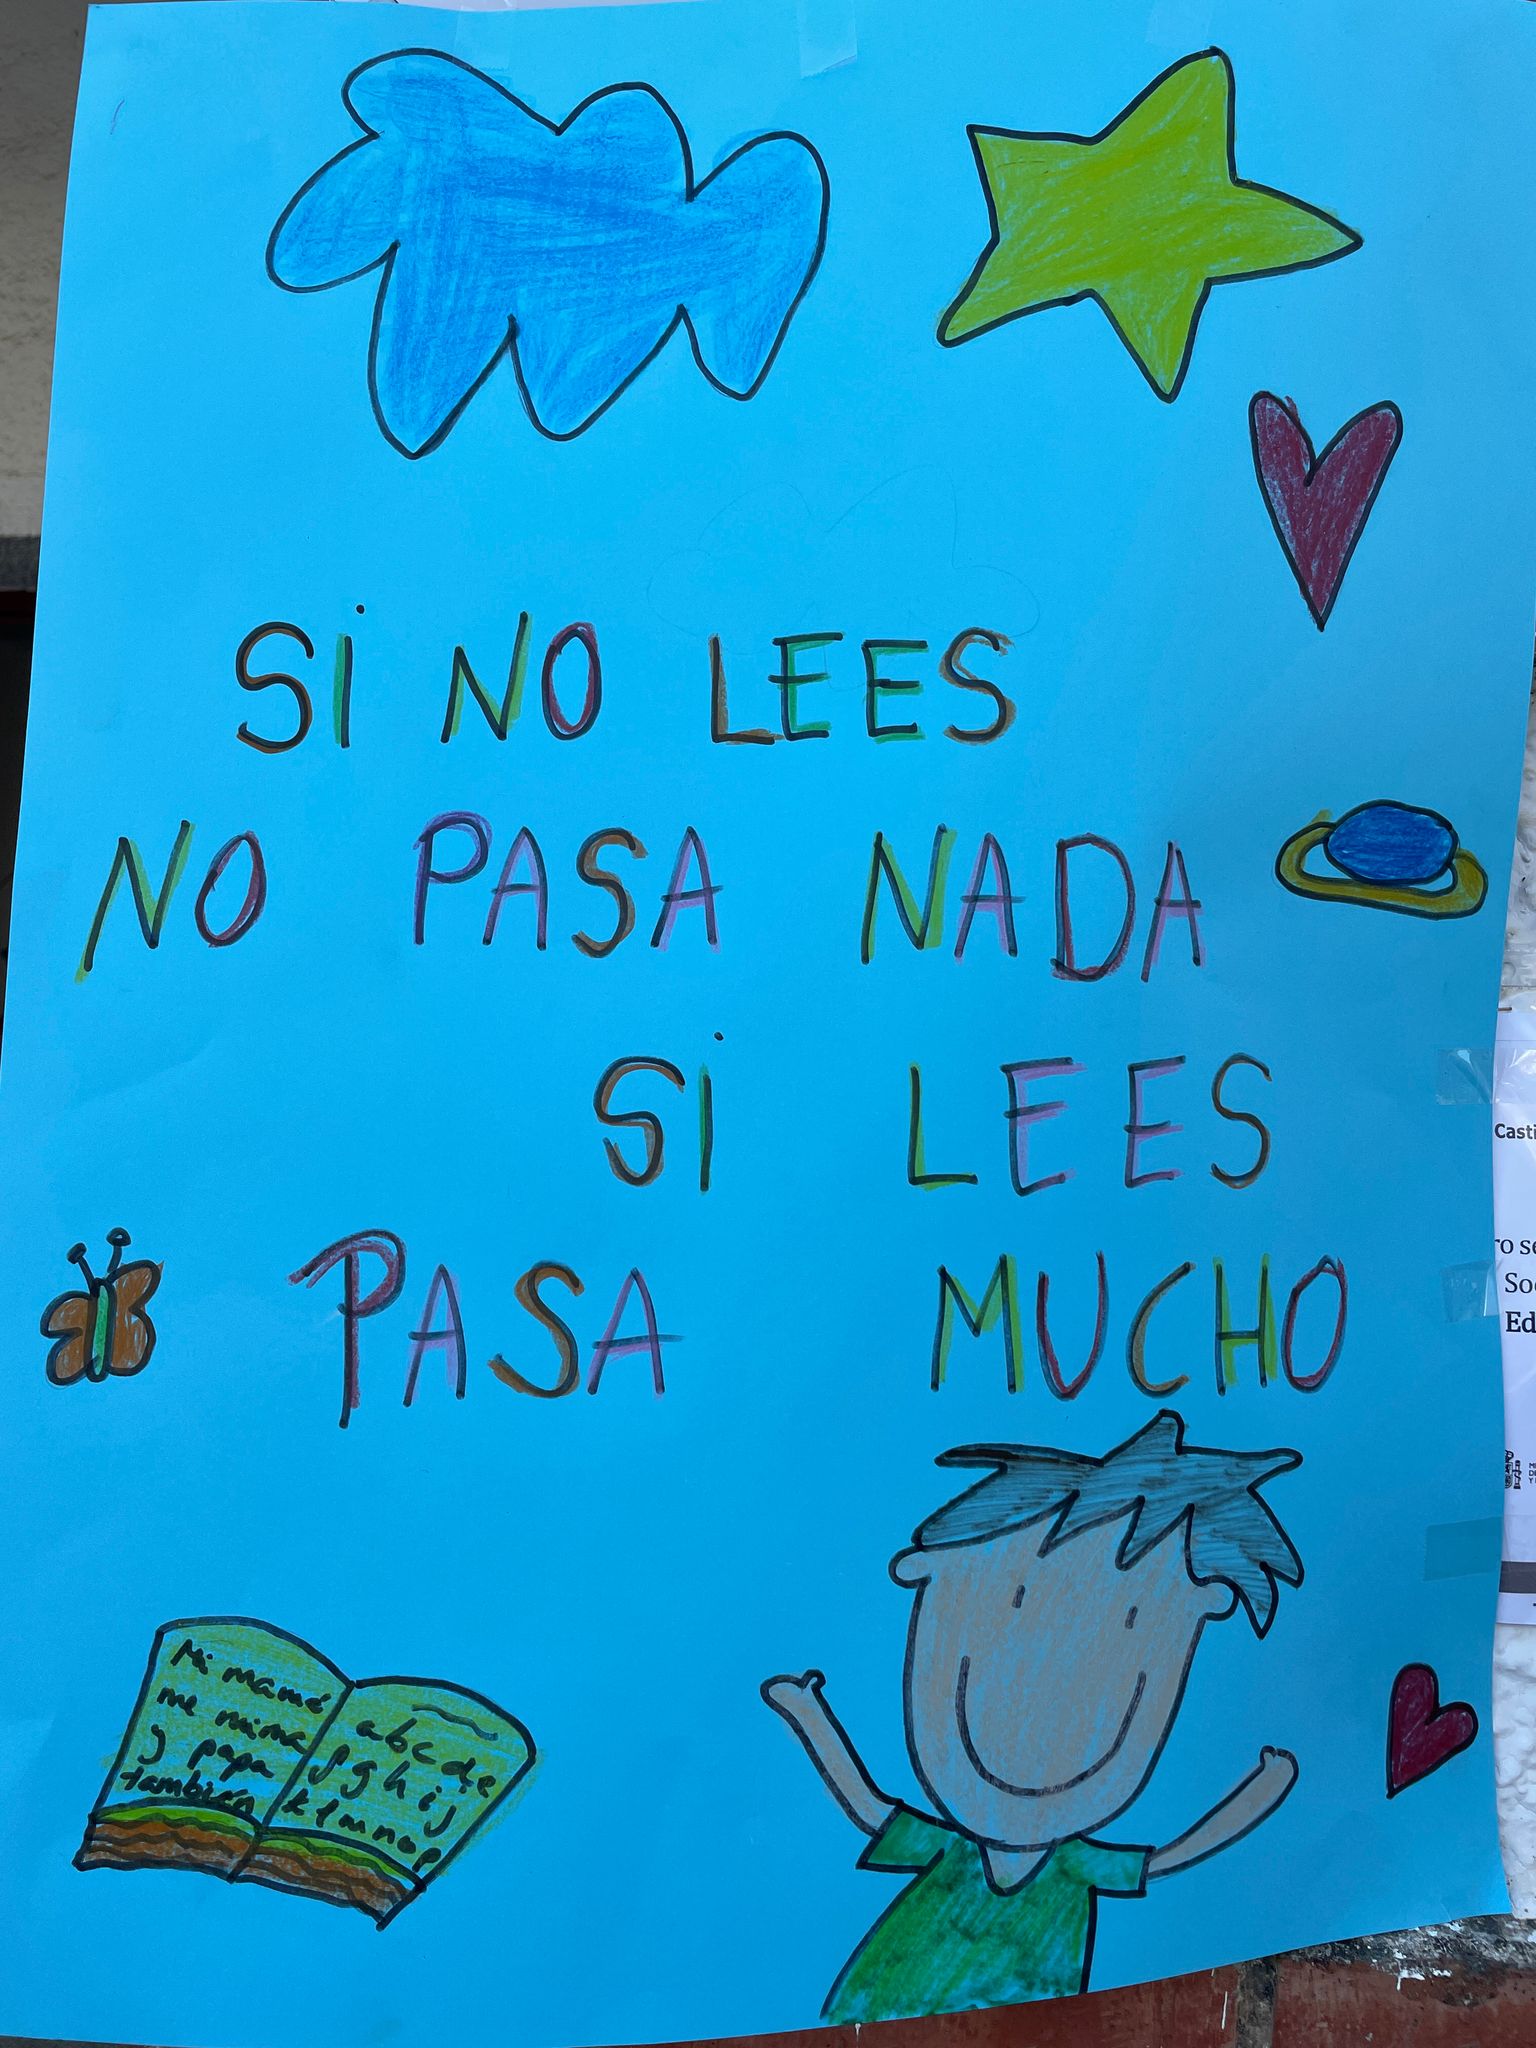 SI NO LEES
NO PASA NADA
SI LEES
PASA MUCHO
Mi mamá
me mima
y papa
tambien
abcde
fghij
klmnop
Casti
ro se
Soc
Ed